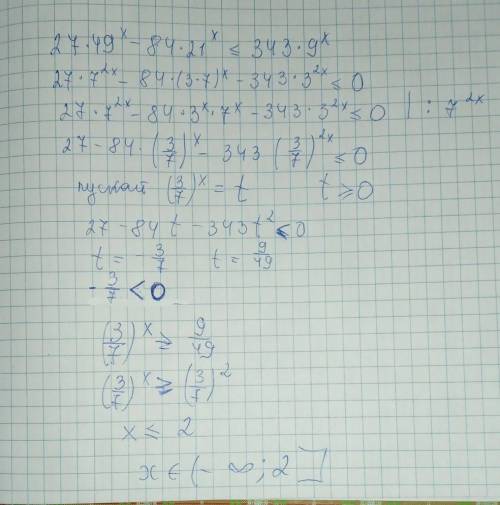 27·49^x - 84·21^x ≤ 343·9^x
27·7^2x - 84·(3·7)^x - 343·3^2x ≤ 0
27·7^2x - 84·3^x·7^x - 343·3^2x ≤ 0 | : 7^2x
27 - 84·(3/7)^x - 343(3/7)^2x ≤ 0
пускай (3/7)^x = t t ≥ 0
27 - 84t - 343t^2 < 0
t = -3/7 t = 9/49
-3/7 < 0
(3/7)^x ≥ 9/49
(3/7)^x ≥ (3/7)^2
x ≤ 2
x ∈ (-∞; 2]